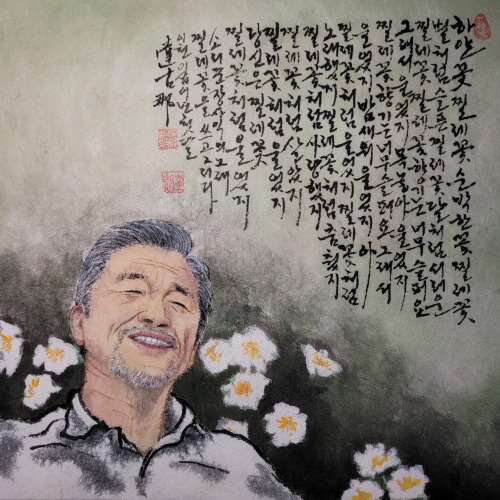 하얀꽃 찔레꽃 순박한 꽃 찔레꽃
별처럼 슬픈 찔레꽃 달처럼 서러운
찔레꽃 찔레꽃 향기는 너무 슬퍼요
그래서 울었지 목놓아 울었지
찔레꽃 향기는 너무 슬퍼요 그래서
울었지 밤새워 울었지 아
찔레꽃처럼 울었지 찔레꽃처럼
노래했지 찔레꽃처럼 춤췄지
찔레꽃처럼 사랑했지
찔레꽃처럼 살았지
찔레꽃처럼 울었지
당신은 찔레꽃
찔레꽃처럼 울었지
소리꾼 장사익의 노래
찔레꽃을 쓰고 그리다